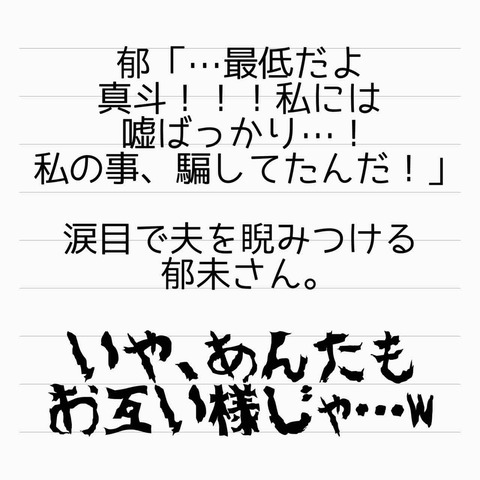 郁「…最低だよ
真斗！！！私には
嘘ばっかり…！
私の事、騙してたんだ！」
涙目で夫を睨みつける
郁未さん。
いや、あんたも
お互い様じゃ…w